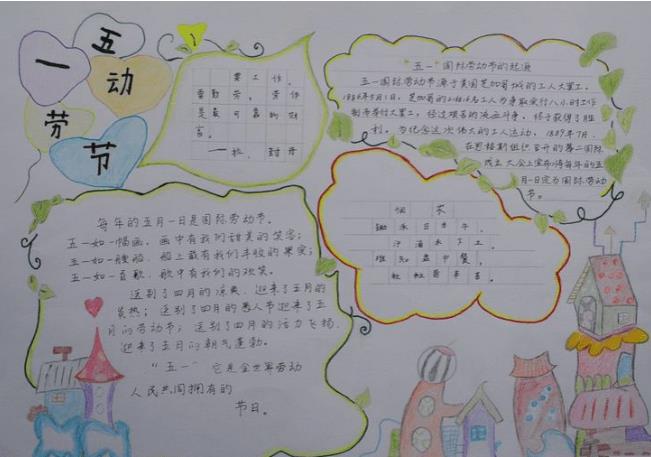 五
一
动
劳
节
要工作,
要勤劳。劳作
是最可靠的财
富。
——拉·封丹
"五一"国际劳动节的起源
五一国际劳动节源于美国芝加哥城的工人大罢工。
1886年5月1日,芝加哥的216000名工人为争取实行八小时工作
制而举行大罢工,经过艰苦的流血斗争,终于获得了胜
利。为纪念这次伟大的工人运动,1889年7月,
在恩格斯组织召开的第二国际
成立大会上宣布将每年的五
月一日定为国际劳动
节。
悯农
锄禾日当午,
汗滴禾下土。
谁知盘中餐,
粒粒皆辛苦。
每年的五月一日是国际劳动节。
五一如一幅画,画中有我们甜美的笑容;
五一如一艘船,船上载有我们丰收的果实;
五一如一首歌,歌中有我们的欢笑。
送别了四月的凉爽,迎来了五月的
炎热;送别了四月的愚人节迎来了五
月的劳动节;送别了四月的活力飞扬,
迎来了五月的朝气蓬勃。
"五一" 它是全世界劳动
人民共同拥有的
节日。